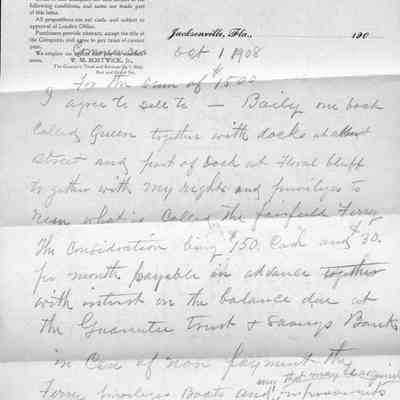 following conditions, and same are made part
of this lease.
All propositions are net cash and subject to
approval of London Office.
Purchasers provide abstract, except the title of
the Companies and agree to pay taxes of current
year.
W. M. BOSTWICK, Jr.,
Jacksonville, Fla., 190
Oct 1 1908
For the sum of $1500
I agree to sell to — Baily one boat
Called Queen together with docks at
Street and part of Dock at Floral bluff
together with my rights and privileges to
run what is Called the fairfield Ferry
The Consideration being $150. Cash and $30.
per month payable in advance together
with interest on the balance due at
the Guarantee trust & Savings Bank
in Case of non payment the
any that may be acquired
Ferry privileges Boats and improvements